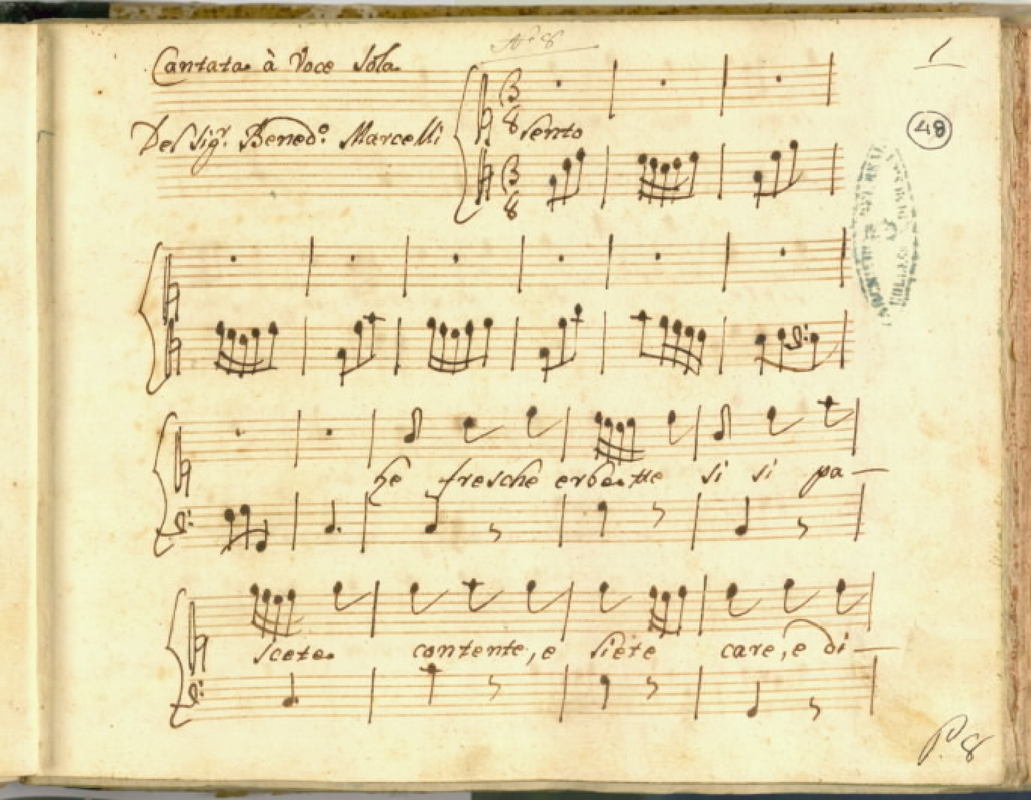 Nº 8
Cantata à Voce Sola
1
48
Del Sigr. Benedo. Marcelli
3
8
Lento
3
8
fresche erbette si si pa—
scete contente, e siete care, e di—
P. 8